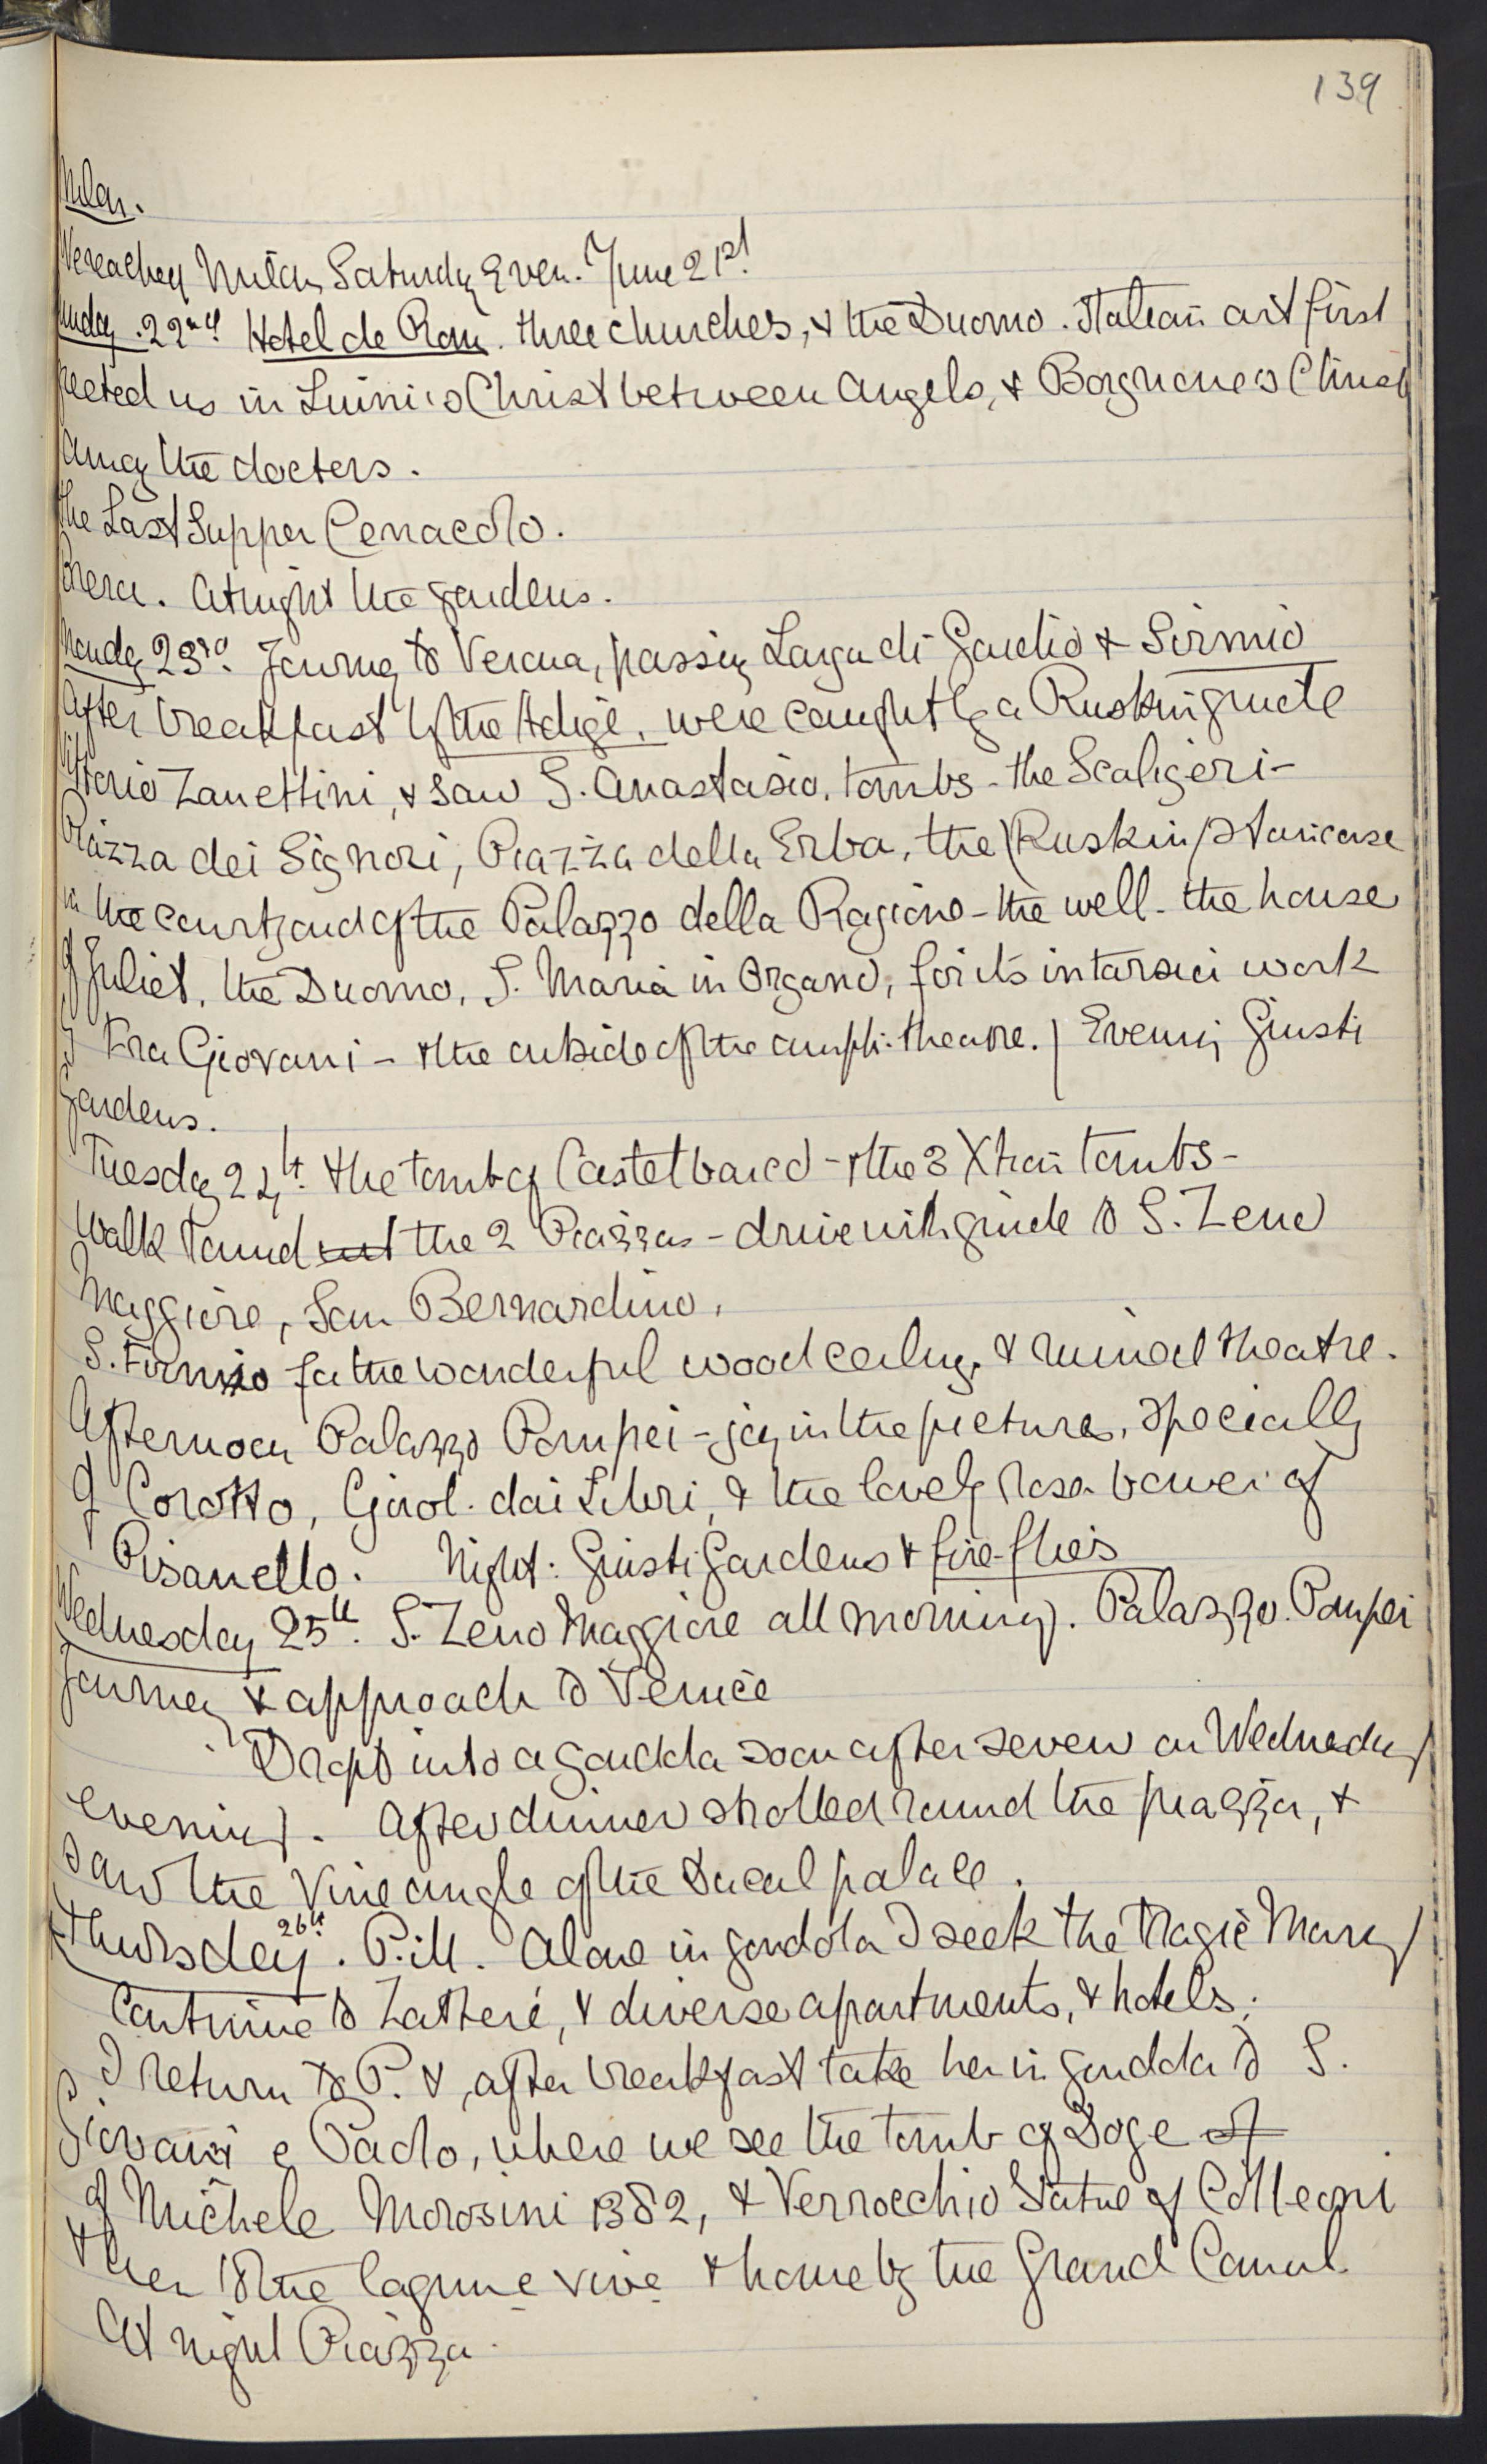 139
Milan.
We reached Milan Saturday Even. June 21st.
Sunday. 22nd Hotel de Rome. three churches, & the Duomo. Italian art first
greeted us in Luini's Christ between Angels, & Borgnone's Christ
among the doctors.
The Last Supper Cenacolo.
Brera. At night the gardens.
Monday 23rd. Journey to Verona, passing Lago di Garda & Sirmio
After breakfast by the Adige, were caught by a Ruskin guide
Zanettini, & saw S. Anastasia, tombs - the Scaligeri -
Piazza dei Signori, Piazza della Erba, the (Ruskin) staircase
in the courtyard of the Palazzo della Ragione - the well - the house
of Juliet, the Duomo, S. Maria in Organo, for its intarsia work
by Fra Giovani - & the outside of the amphi-theatre. / Evening Giusti
gardens.
Tuesday 24th. the tomb of Castelbarco - & the 3 Xtian tombs -
Walk round out the 2 Piazzas - drive with guide to S. Zeno
Maggiore, San Bernardino,
S. Firmio for the wonderful wood ceiling, & ruined theatre.
Afternoon Palazzo Pompei - joy in the pictures, specially
of Corotto, Girol. dai Libri, & the lovely Rose bower of
Pisanello. Night: Giusti Gardens & fire-flies
Wednesday 25th. S. Zeno Maggiore all morning. Palazzo Pompei
Journey & approach to Venice
Dropt into a gondola soon after seven on Wednesday
evening. After dinner strolled round the piazza, &
saw the Vine angle of the Ducal palace.
Thursday 26th. P. ill. Alone in gondola I seek the Magic Mary
Continue to Zattere, & diverse apartments, & hotels.
I return to P. &, after breakfast take her in gondola to S.
Giovani e Paolo, where we see the tomb of Doge of
of Michele Morosini 1382, & Verrocchio Statue of Colleoni
& then to the lagune vive & home by the Grand Canal.
At night Piazza.